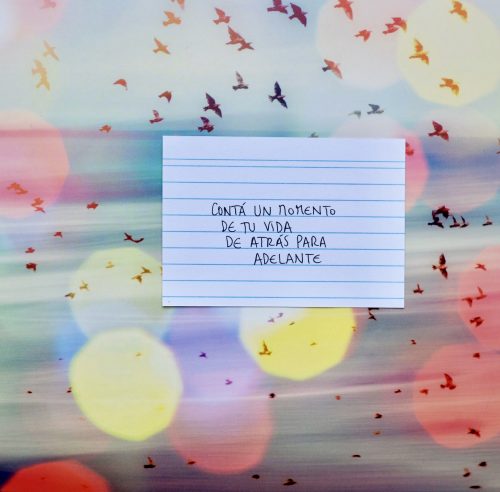 CONTÁ UN MOMENTO
DE TU VIDA
DE ATRÁS PARA
ADELANTE